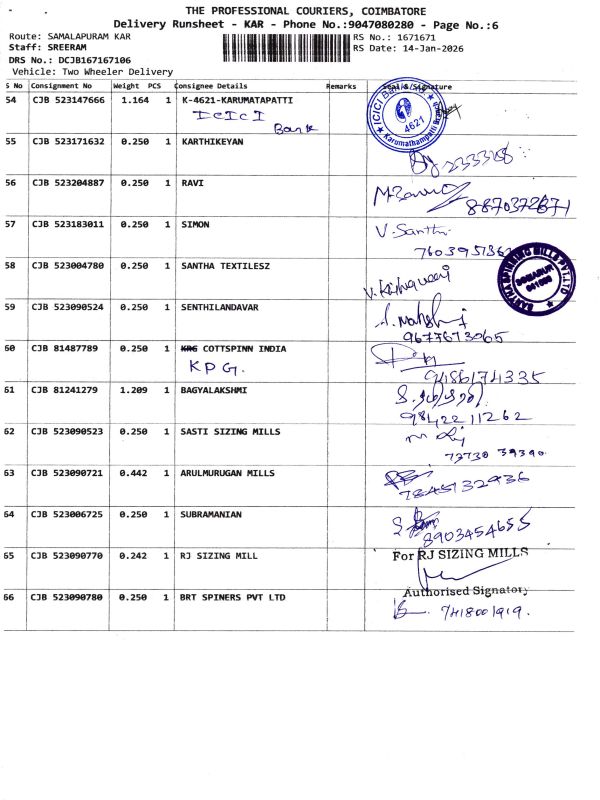 THE PROFESSIONAL COURIERS, COIMBATORE
Delivery Runsheet - KAR - Phone No.:9047080280 - Page No.:6
Route: SAMALAPURAM KAR
RS No.: 1671671
Staff: SREERAM
RS Date: 14-Jan-2026
DRS No.: DCJB167167106
Vehicle: Two Wheeler Delivery
S No Consignment No Weight PCS Consignee Details Remarks Seal & Signature
54 CJB 523147666 1.164 1 K-4621-KARUMATAPATTI
ICICI
Bank
ICICI Bank
4621
Karumathampatti Branch
55 CJB 523171632 0.250 1 KARTHIKEYAN
56 CJB 523204887 0.250 1 RAVI
57 CJB 523183011 0.250 1 SIMON
V. Santhi
58 CJB 523004780 0.250 1 SANTHA TEXTILESZ
SPINNING MILLS PVT.LTD
SOMANUR
59 CJB 523090524 0.250 1 SENTHILANDAVAR
9677673065
60 CJB 81487789 0.250 1 KRG COTTSPINN INDIA
KPG.
61 CJB 81241279 1.209 1 BAGYALAKSHMI
9842211262
62 CJB 523090523 0.250 1 SASTI SIZING MILLS
73730 39390
63 CJB 523090721 0.442 1 ARULMURUGAN MILLS
7845132936
64 CJB 523006725 0.250 1 SUBRAMANIAN
8903454655
65 CJB 523090770 0.242 1 RJ SIZING MILL
For RJ SIZING MILLS
Authorised Signatory
66 CJB 523090780 0.250 1 BRT SPINERS PVT LTD
7418001919.